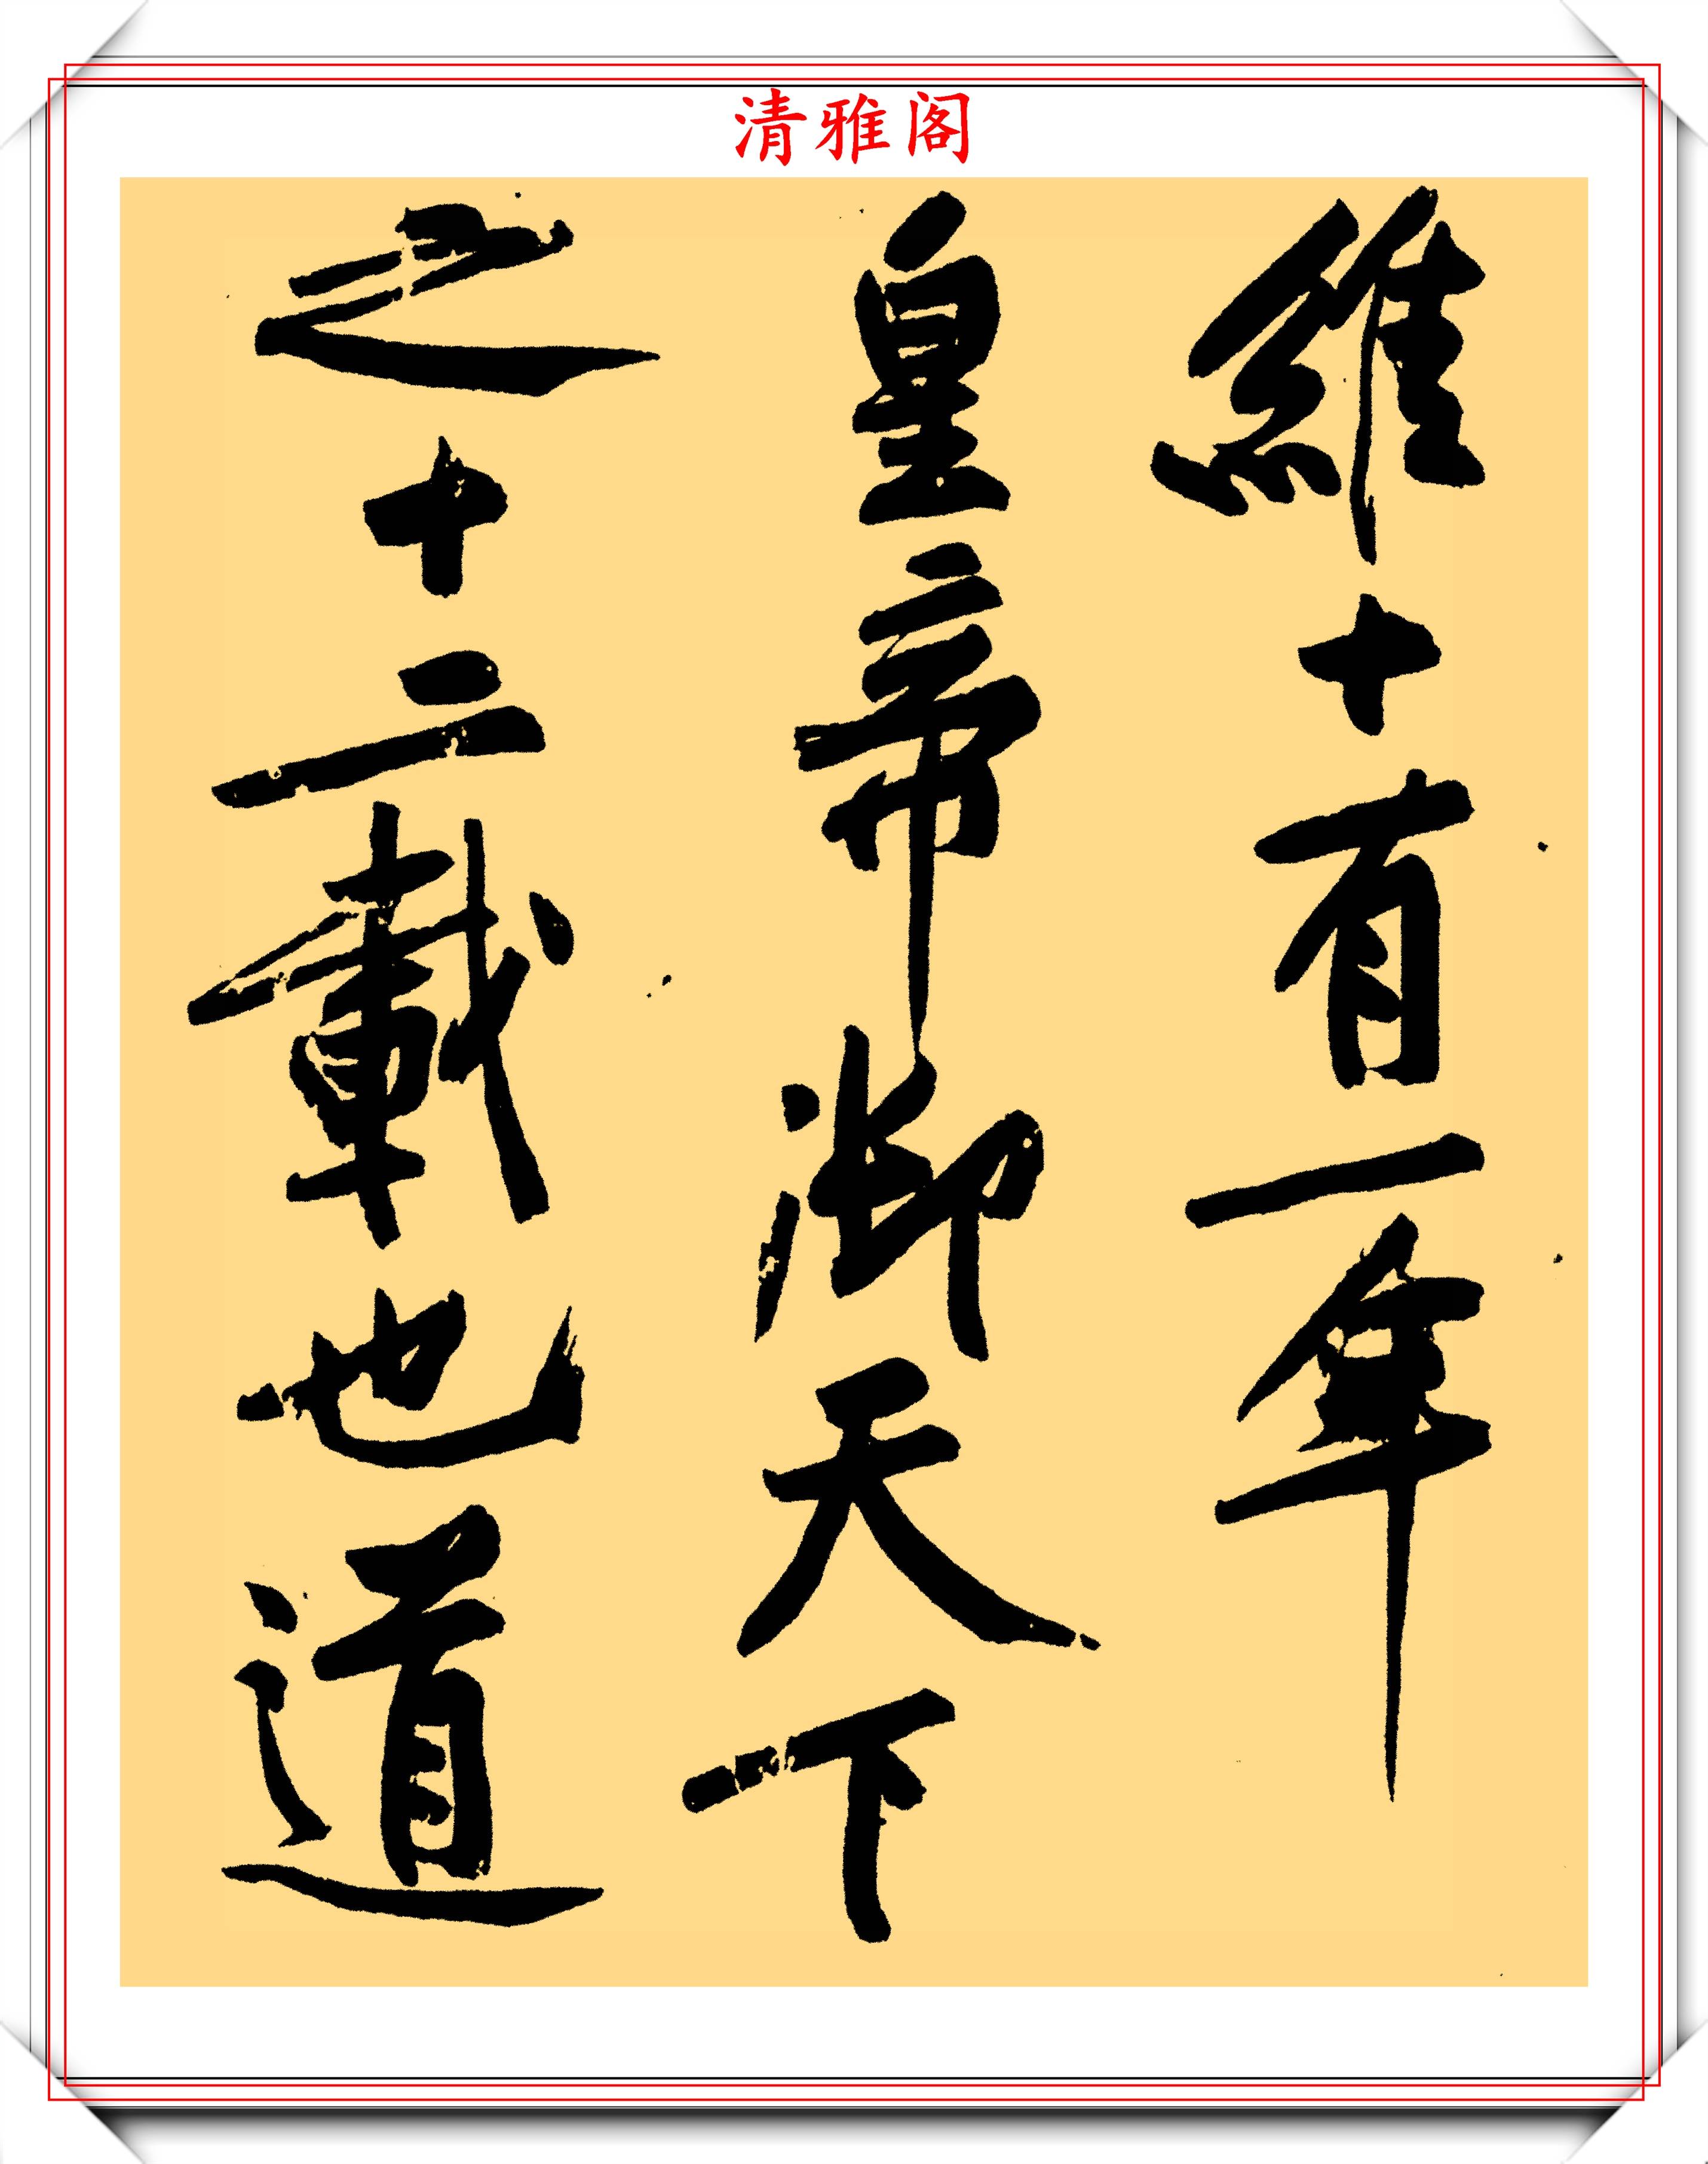 清雅阁
維十有一年
皇帝御天下
之十二載也道